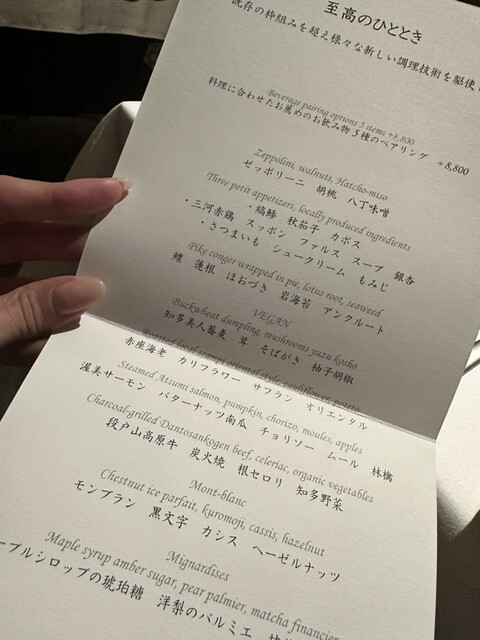 至高のひととき
既存の枠組みを超え様々な新しい調理技術を駆使
Beverage pairing options 5 items +8,800
料理に合わせたお薦めのお飲み物5種のペアリング +8,800
Zeppolini, walnuts, Hatcho-miso
ゼッポリーニ 胡桃 八丁味噌
Three petit appetizers, locally produced ingredients
・縞鯵 秋茄子 カボス
・三河赤鶏 スッポン ファルス スープ 銀杏
・さつまいも シュークリーム もみじ
Pike conger wrapped in pie, lotus root, seaweed
鱧 蓮根 ほおづき 岩海苔 アンクルート
VEGAN
Buckwheat dumpling, mushrooms yuzu kosho
知多美人蕎麦 茸 そばがき 柚子胡椒
Roasted local scampi oriental style, cauliflower, potato
赤座海老 カリフラワー サフラン オリエンタル
Steamed Atsumi salmon, pumpkin, chorizo, moules, apples
渥美サーモン バターナッツ南瓜 チョリソー ムール 林檎
Charcoal-grilled Dantosankogen beef, celeriac, organic vegetables
段戸山高原牛 炭火焼 根セロリ 知多野菜
Mont-blanc
Chestnut ice parfait, kuromoji, cassis, hazelnut
モンブラン 黒文字 カシス ヘーゼルナッツ
Mignardises
Maple syrup amber sugar, pear palmier, matcha financier
ープルシロップの琥珀糖 洋梨のパルミエ